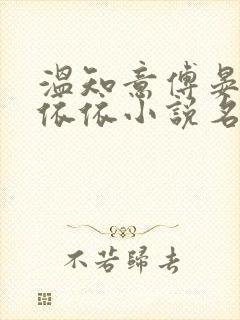 温知意傅晏
依依小說名
不若歸去